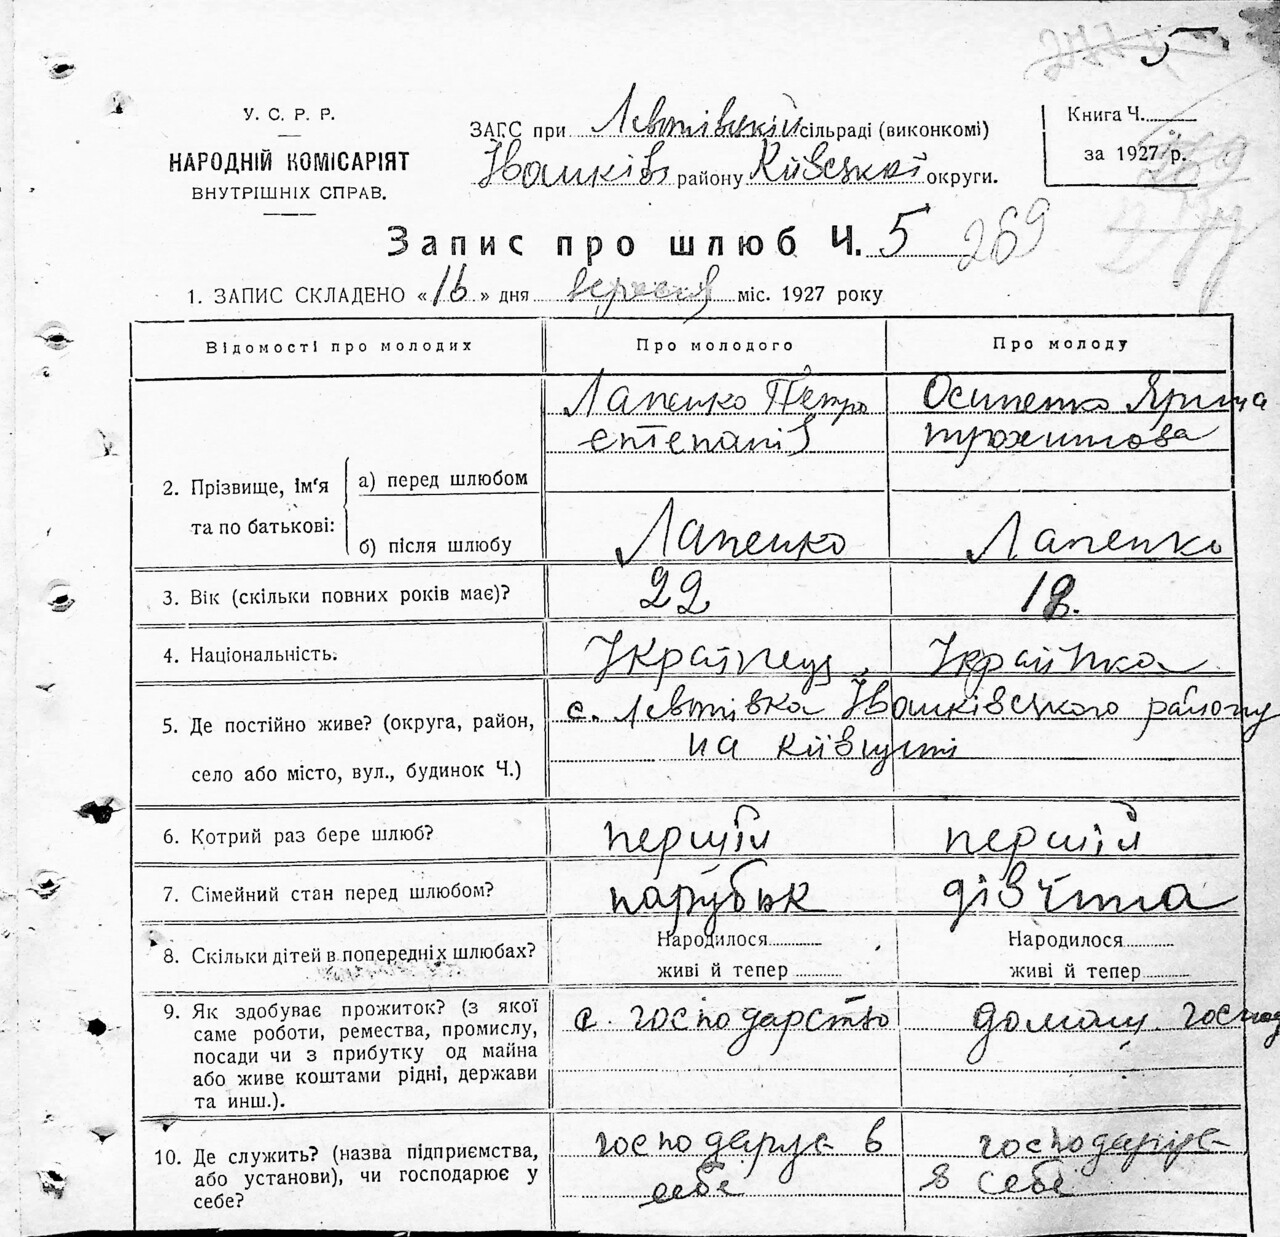 5
У. С. Р. Р.
НАРОДНІЙ КОМІСАРІЯТ
ВНУТРІШНІХ СПРАВ.
ЗАГС при Левтівській сільраді (виконкомі)
Івашків району Київської округи.
Книга Ч.
за 1927 р.
Запис про шлюб Ч. 5 269
1. ЗАПИС СКЛАДЕНО «16» дня вересня міс. 1927 року
Відомості про молодих Про молодого Про молоду
Лапенко Петро Осипенко Ярина
степанів трохимова
2. Прізвище, ім'я та по батькові:
а) перед шлюбом
б) після шлюбу Лапенко Лапенко
3. Вік (скільки повних років має)? 22 18.
4. Національність. Українец Українка
5. Де постійно живе? (округа, район, село або місто, вул., будинок Ч.)
с. Левтівка Івашківського району
на київщині
6. Котрий раз бере шлюб? перший перший
7. Сімейний стан перед шлюбом? парубок дівчина
8. Скільки дітей в попередніх шлюбах?
Народилося Народилося
живі й тепер живі й тепер
9. Як здобуває прожиток? (з якої
саме роботи, ремества, промислу,
посади чи з прибутку од майна
або живе коштами рідні, держави
та инш.).
с. господарство домаш. господ
10. Де служить? (назва підприємства,
або установи), чи господарює у
себе?
господарує в господарує
себе в себе